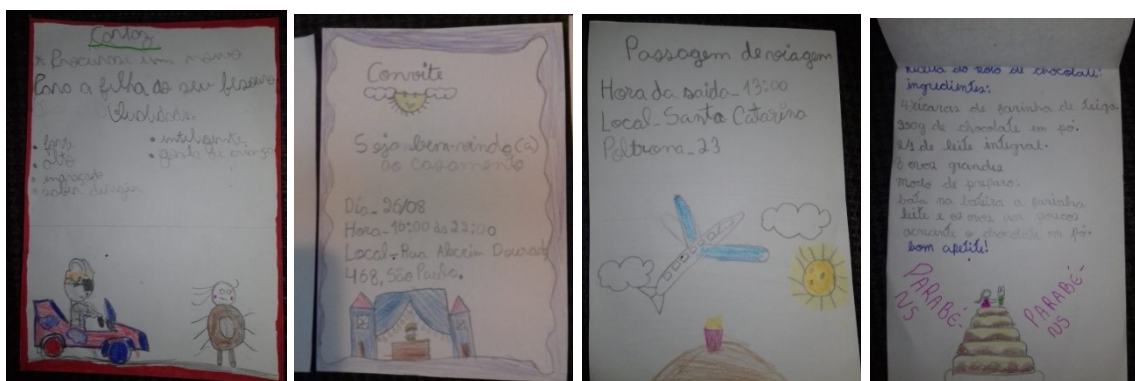 Cartaz
Procura-se um noivo
Para a filha do seu besouro
Qualidades:
• forte
• alto
• engraçado
• saber dirigir
• inteligente
• gosta de criança
Convite
Seja bem-vindo(a)
ao casamento
Dia_ 26/08
Hora_16:00 às 22:00
Local_Rua Alecrim Dourado
468, São Paulo.
Passagem de viagem
Hora da saída_13:00
Local_Santa Catarina
Poltrona_23
receita do bolo de chocolate:
ingredientes:
4 xícaras de farinha de trigo.
de chocolate em pó.
de leite integral.
6 ovos grandes
modo de preparo:
bata na batedeira a farinha
leite e os ovos aos poucos
acrescente o chocolate em pó.
bom apetite!
PARABÉ-
NS
PARABÉ-
NS